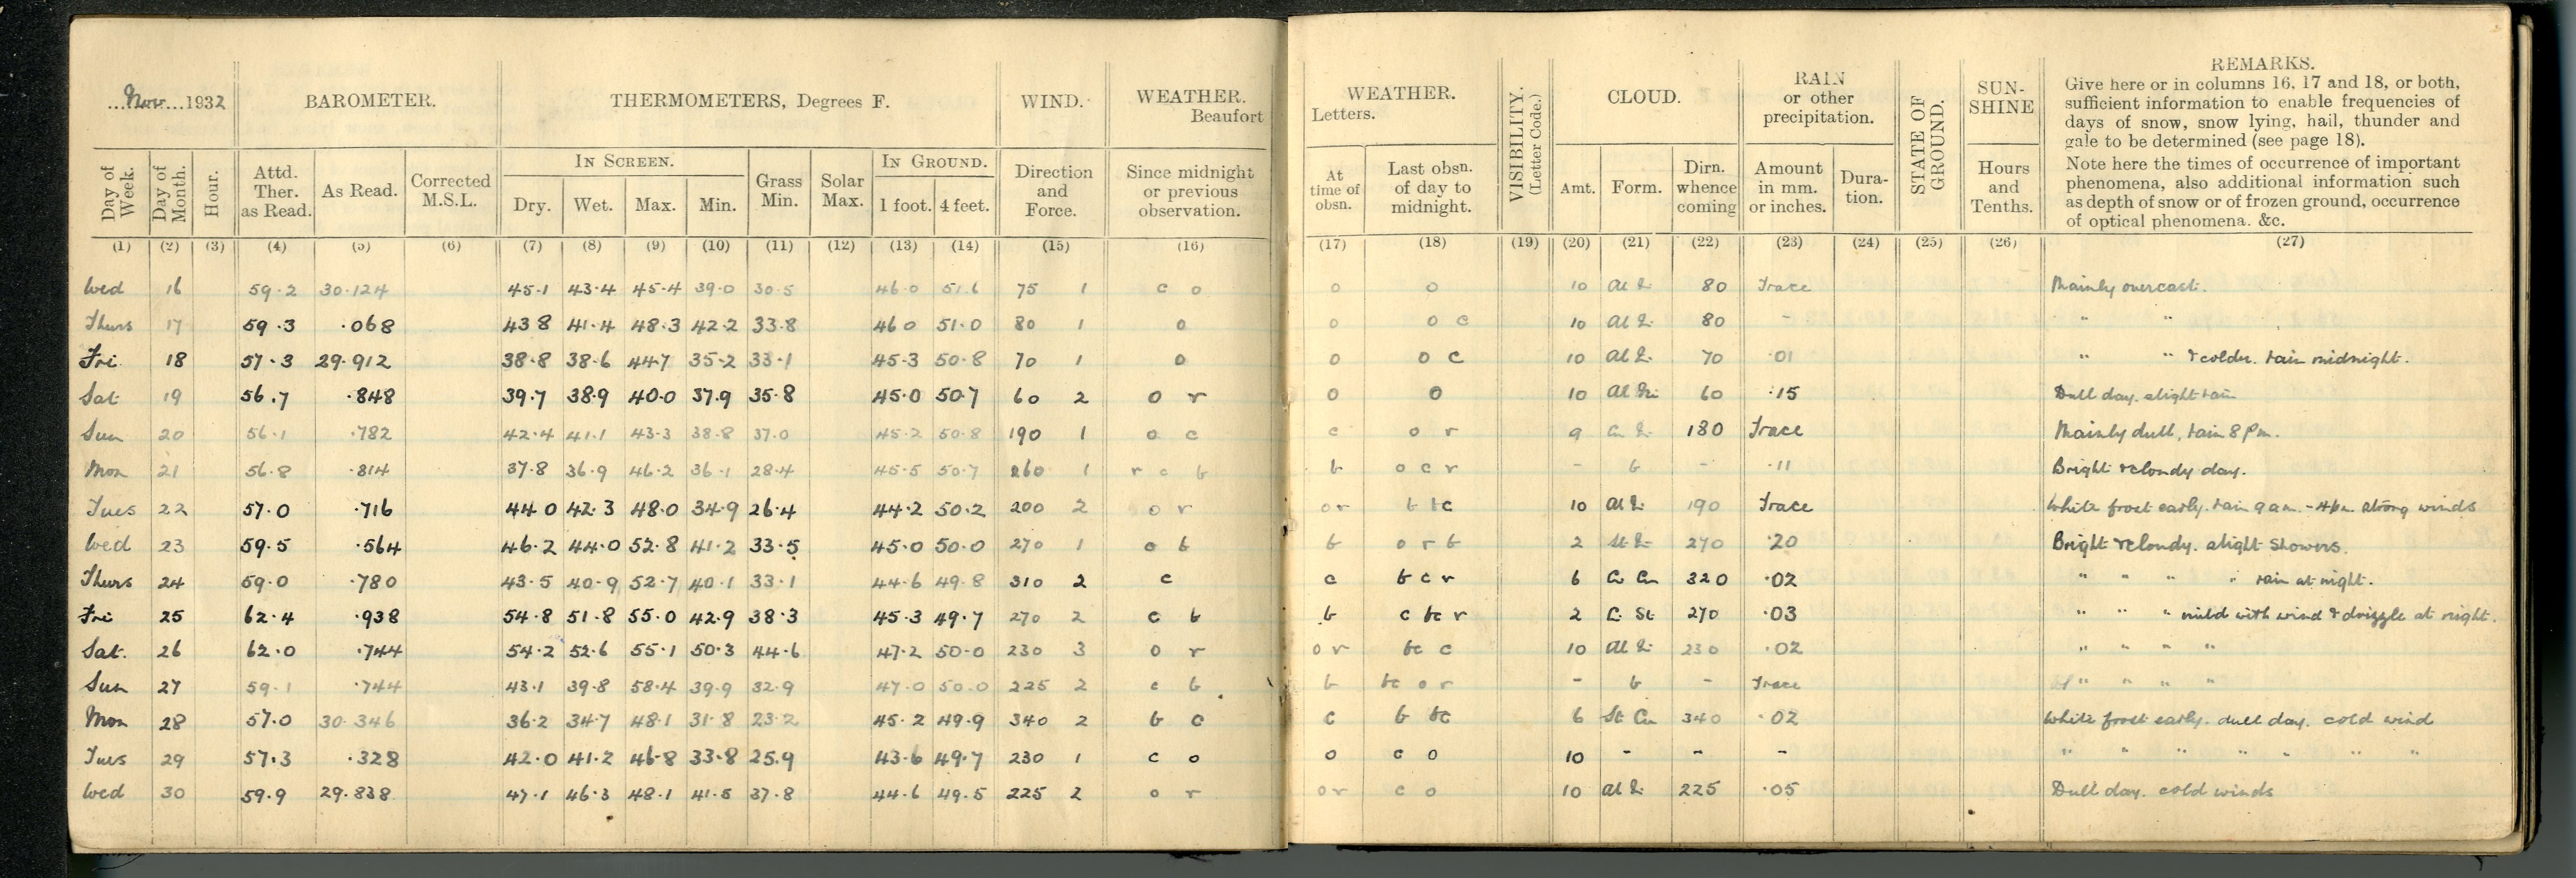 Nov 1932
BAROMETER.
THERMOMETERS, Degrees F.
WIND.
WEATHER.
Beaufort
WEATHER.
Letters.
VISIBILITY.
(Letter Code.)
CLOUD.
RAIN
or other
precipitation.
STATE OF
GROUND.
SUN-
SHINE
REMARKS.
Give here or in columns 16, 17 and 18, or both,
sufficient information to enable frequencies of
days of snow, snow lying, hail, thunder and
gale to be determined (see page 18).
Note here the times of occurrence of important
phenomena, also additional information such
as depth of snow or of frozen ground, occurrence
of optical phenomena. &c.
Day of
Week.
Day of
Month.
Hour.
Attd.
Ther.
as Read.
As Read.
Corrected
M.S.L.
IN SCREEN.
Dry. Wet. Max. Min.
Grass
Min.
Solar
Max.
IN GROUND.
1 foot. 4 feet.
Direction
and
Force.
Since midnight
or previous
observation.
At
time of
obsn.
Last obsn.
of day to
midnight.
Amt. Form.
Dirn.
whence
coming
Amount
in mm.
or inches.
Dura-
tion.
Hours
and
Tenths.
(1) (2) (3) (4) (5) (6) (7) (8) (9) (10) (11) (12) (13) (14) (15) (16) (17) (18) (19) (20) (21) (22) (23) (24) (25) (26) (27)
Wed 16 59.2 30.124 45.1 43.4 45.4 39.0 30.5 46.0 51.6 75 1 c o o o 10 80 Trace Mainly overcast.
Thurs 17 59.3 .068 43 8 41.4 48.3 42.2 33.8 46 0 51.0 80 1 o o o c 10 80 - " "
Fri 18 57.3 29.912 38.8 38.6 44.7 35.2 33.1 45.3 50.8 70 1 o o o c 10 70 .01 " " & colder. rain midnight.
Sat 19 56.7 .848 39.7 38.9 40.0 37.9 35.8 45.0 50.7 60 2 o r o o 10 60 .15 Dull day. slight rain
Sun 20 56.1 .782 42.4 41.1 43.3 38.8 37.0 45.2 50.8 190 1 o c c o r 9 180 Trace Mainly dull, rain 8 pm.
Mon 21 56.8 .814 37.8 36.9 46.2 36.1 28.4 45.5 50.7 260 1 r c b b o c r - b - .11 Bright & cloudy day.
Tues 22 57.0 .716 44 0 42.3 48.0 34.9 26.4 44.2 50.2 200 2 o r o r b bc 10 190 Trace White frost early. rain 9 am. - strong winds
Wed 23 59.5 .564 46.2 44.0 52.8 41.2 33.5 45.0 50.0 270 1 o b b o r b 2 270 .20 Bright & cloudy. slight showers.
Thurs 24 59.0 .780 43.5 40.9 52.7 40.1 33.1 44.6 49.8 310 2 c c b c r 6 320 .02 " " " " rain at night.
Fri 25 62.4 .938 54.8 51.8 55.0 42.9 38.3 45.3 49.7 270 2 c b b c bc r 2 270 .03 " " " mild with wind & drizzle at night.
Sat. 26 62.0 .744 54.2 52.6 55.1 50.3 44.6 47.2 50.0 230 3 o r o r bc c 10 230 .02 " " " "
Sun 27 59.1 .744 43.1 39.8 58.4 39.9 32.9 47.0 50.0 225 2 c b b bc o r - b - Trace " " " "
Mon 28 57.0 30.346 36.2 34.7 48.1 31.8 23.2 45.2 49.9 340 2 b c c b bc 6 St Cu 340 .02 White frost early. dull day. cold wind
Tues 29 57.3 .328 42.0 41.2 46.8 33.8 25.9 43.6 49.7 230 1 c o o c o 10 - - - " " " " " " "
Wed 30 59.9 29.838 47.1 46.3 48.1 41.5 37.8 44.6 49.5 225 2 o r o r c o 10 225 .05 Dull day. cold winds